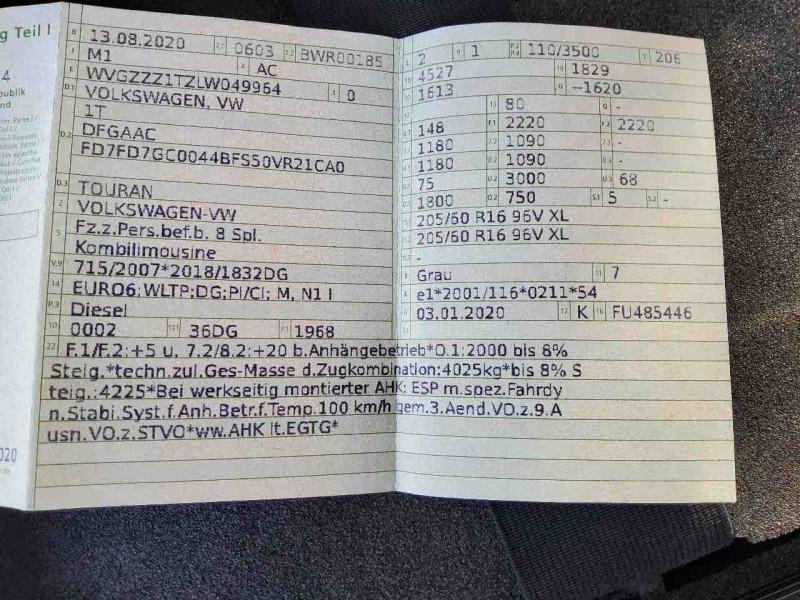 g Teil I
B 13.08.2020 2.1 0603 2.2 BWR00185
J M1 4 AC
E WVGZZZ1TZLW049964 3 0
D.1 VOLKSWAGEN, VW
1T
D.2 DFGAAC
FD7FD7GC0044BFS50VR21CA0
D.3 TOURAN
2 VOLKSWAGEN-VW
5 Fz.z.Pers.bef.b. 8 Spl.
Kombilimousine
V.9 715/2007*2018/1832DG
14 EURO6;WLTP;DG;PI/CI; M, N1 I
P.3 Diesel
10 0002 14.1 36DG P.1 1968
L 2 9 1 P.2 P.4 110/3500 T 206
18 4527 19 1829
20 1613 G --1620
13 80 Q -
V.7 148 F.1 2220 F.2 2220
7.1 1180 7.2 1090 7.3 -
8.1 1180 8.2 1090 8.3 -
U.1 75 U.2 3000 U.3 68
O.1 1800 O.2 750 S.1 5 S.2 -
15.1 205/60 R16 96V XL
15.2 205/60 R16 96V XL
15.3 -
R Grau 11 7
K e1*2001/116*0211*54
6 03.01.2020 17 K 16 FU485446
21
22 F.1/F.2:+5 u. 7.2/8.2:+20 b.Anhängebetrieb*O.1:2000 bis 8%
Steig.*techn.zul.Ges-Masse d.Zugkombination:4025kg*bis 8% S
teig.:4225*Bei werkseitig montierter AHK: ESP m.spez.Fahrdy
n.Stabi.Syst.f.Anh.Betr.f.Temp.100 km/h gem.3.Aend.VO.z.9.A
usn.VO.z.STVO*ww.AHK lt.EGTG*